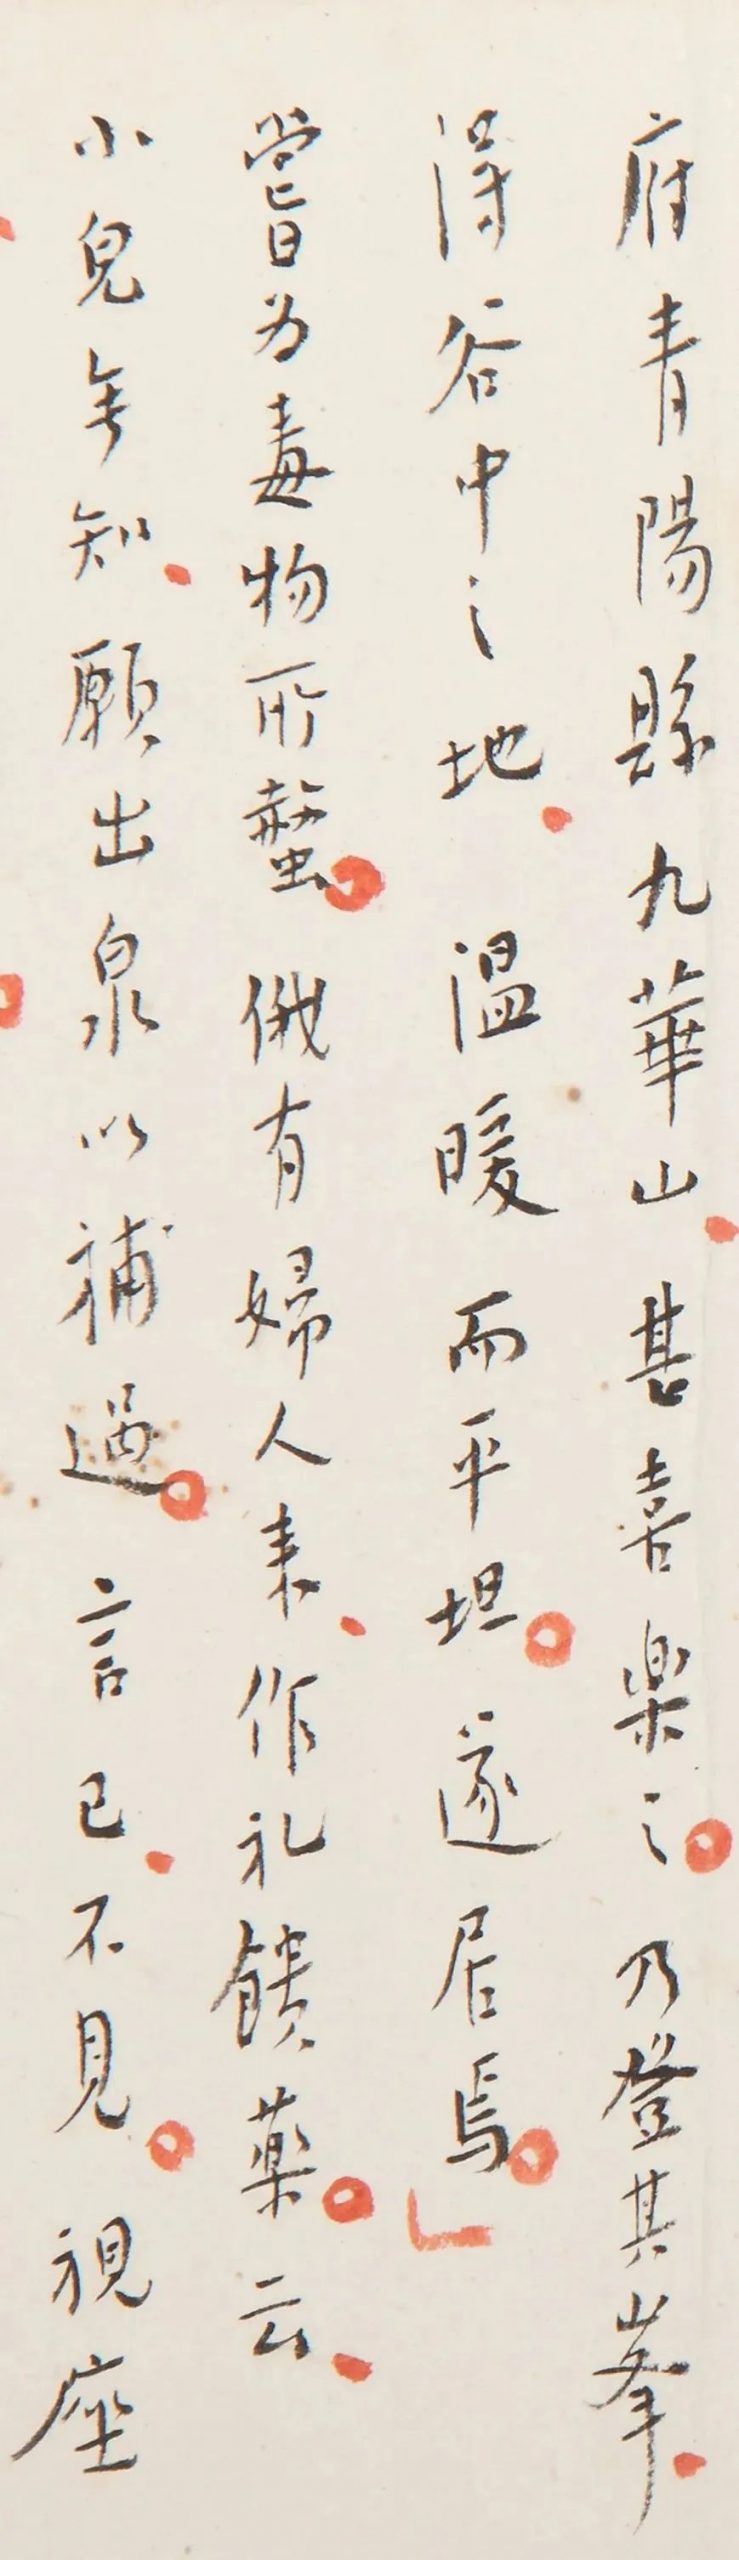 府青陽縣九華山、甚喜樂之。乃登其峯、
得谷中之地、温暖而平坦。遂居焉。」
嘗爲毒物所螫。俄有婦人来、作礼饋薬。云、
小兒無知、願出泉以補過。言已、不見。視座